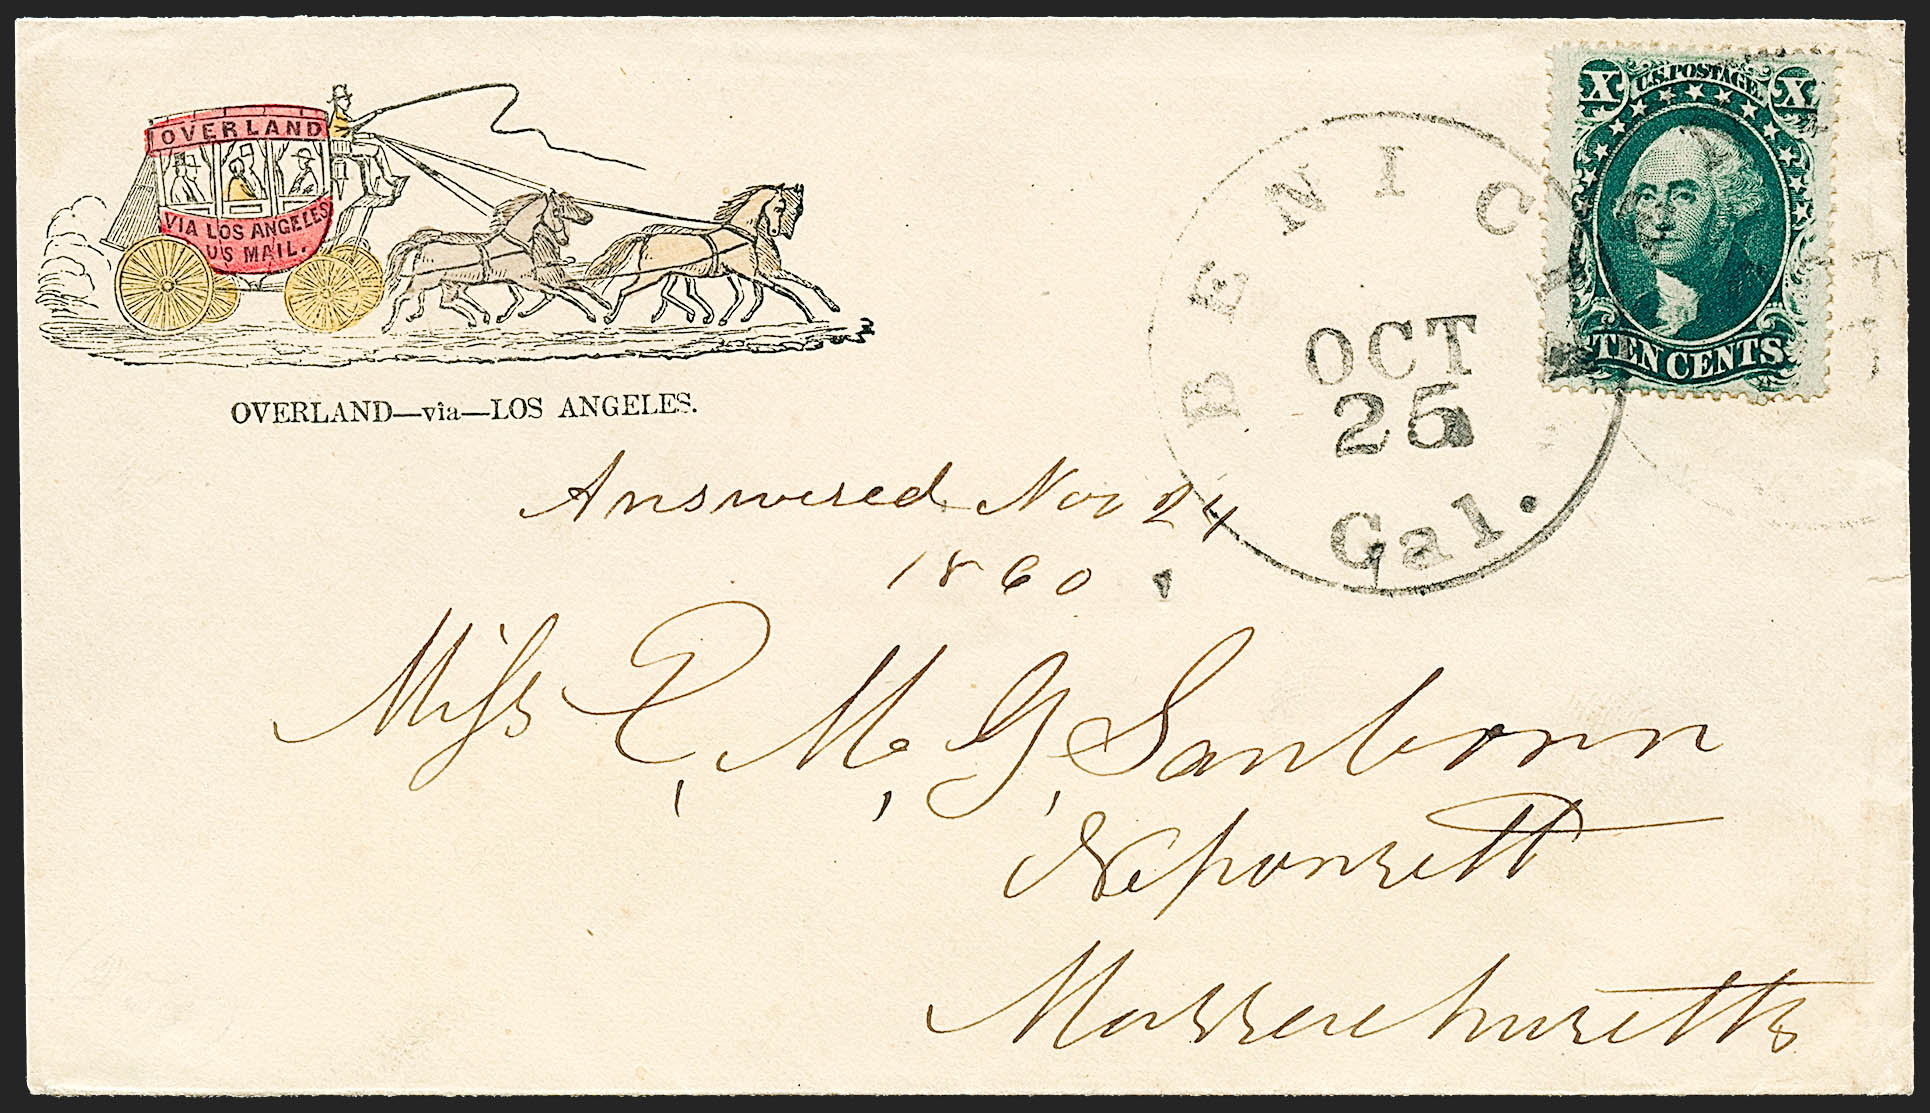 OVERLAND
VIA LOS ANGELES
U'S MAIL.
OVERLAND—via—LOS ANGELES.
X U.S. POSTAGE X
TEN CENTS
BENICIA
OCT
25
Cal.
Answered Nov 24
1860
Miss E, M, G, Sanborn
Neponsett
Massachusetts